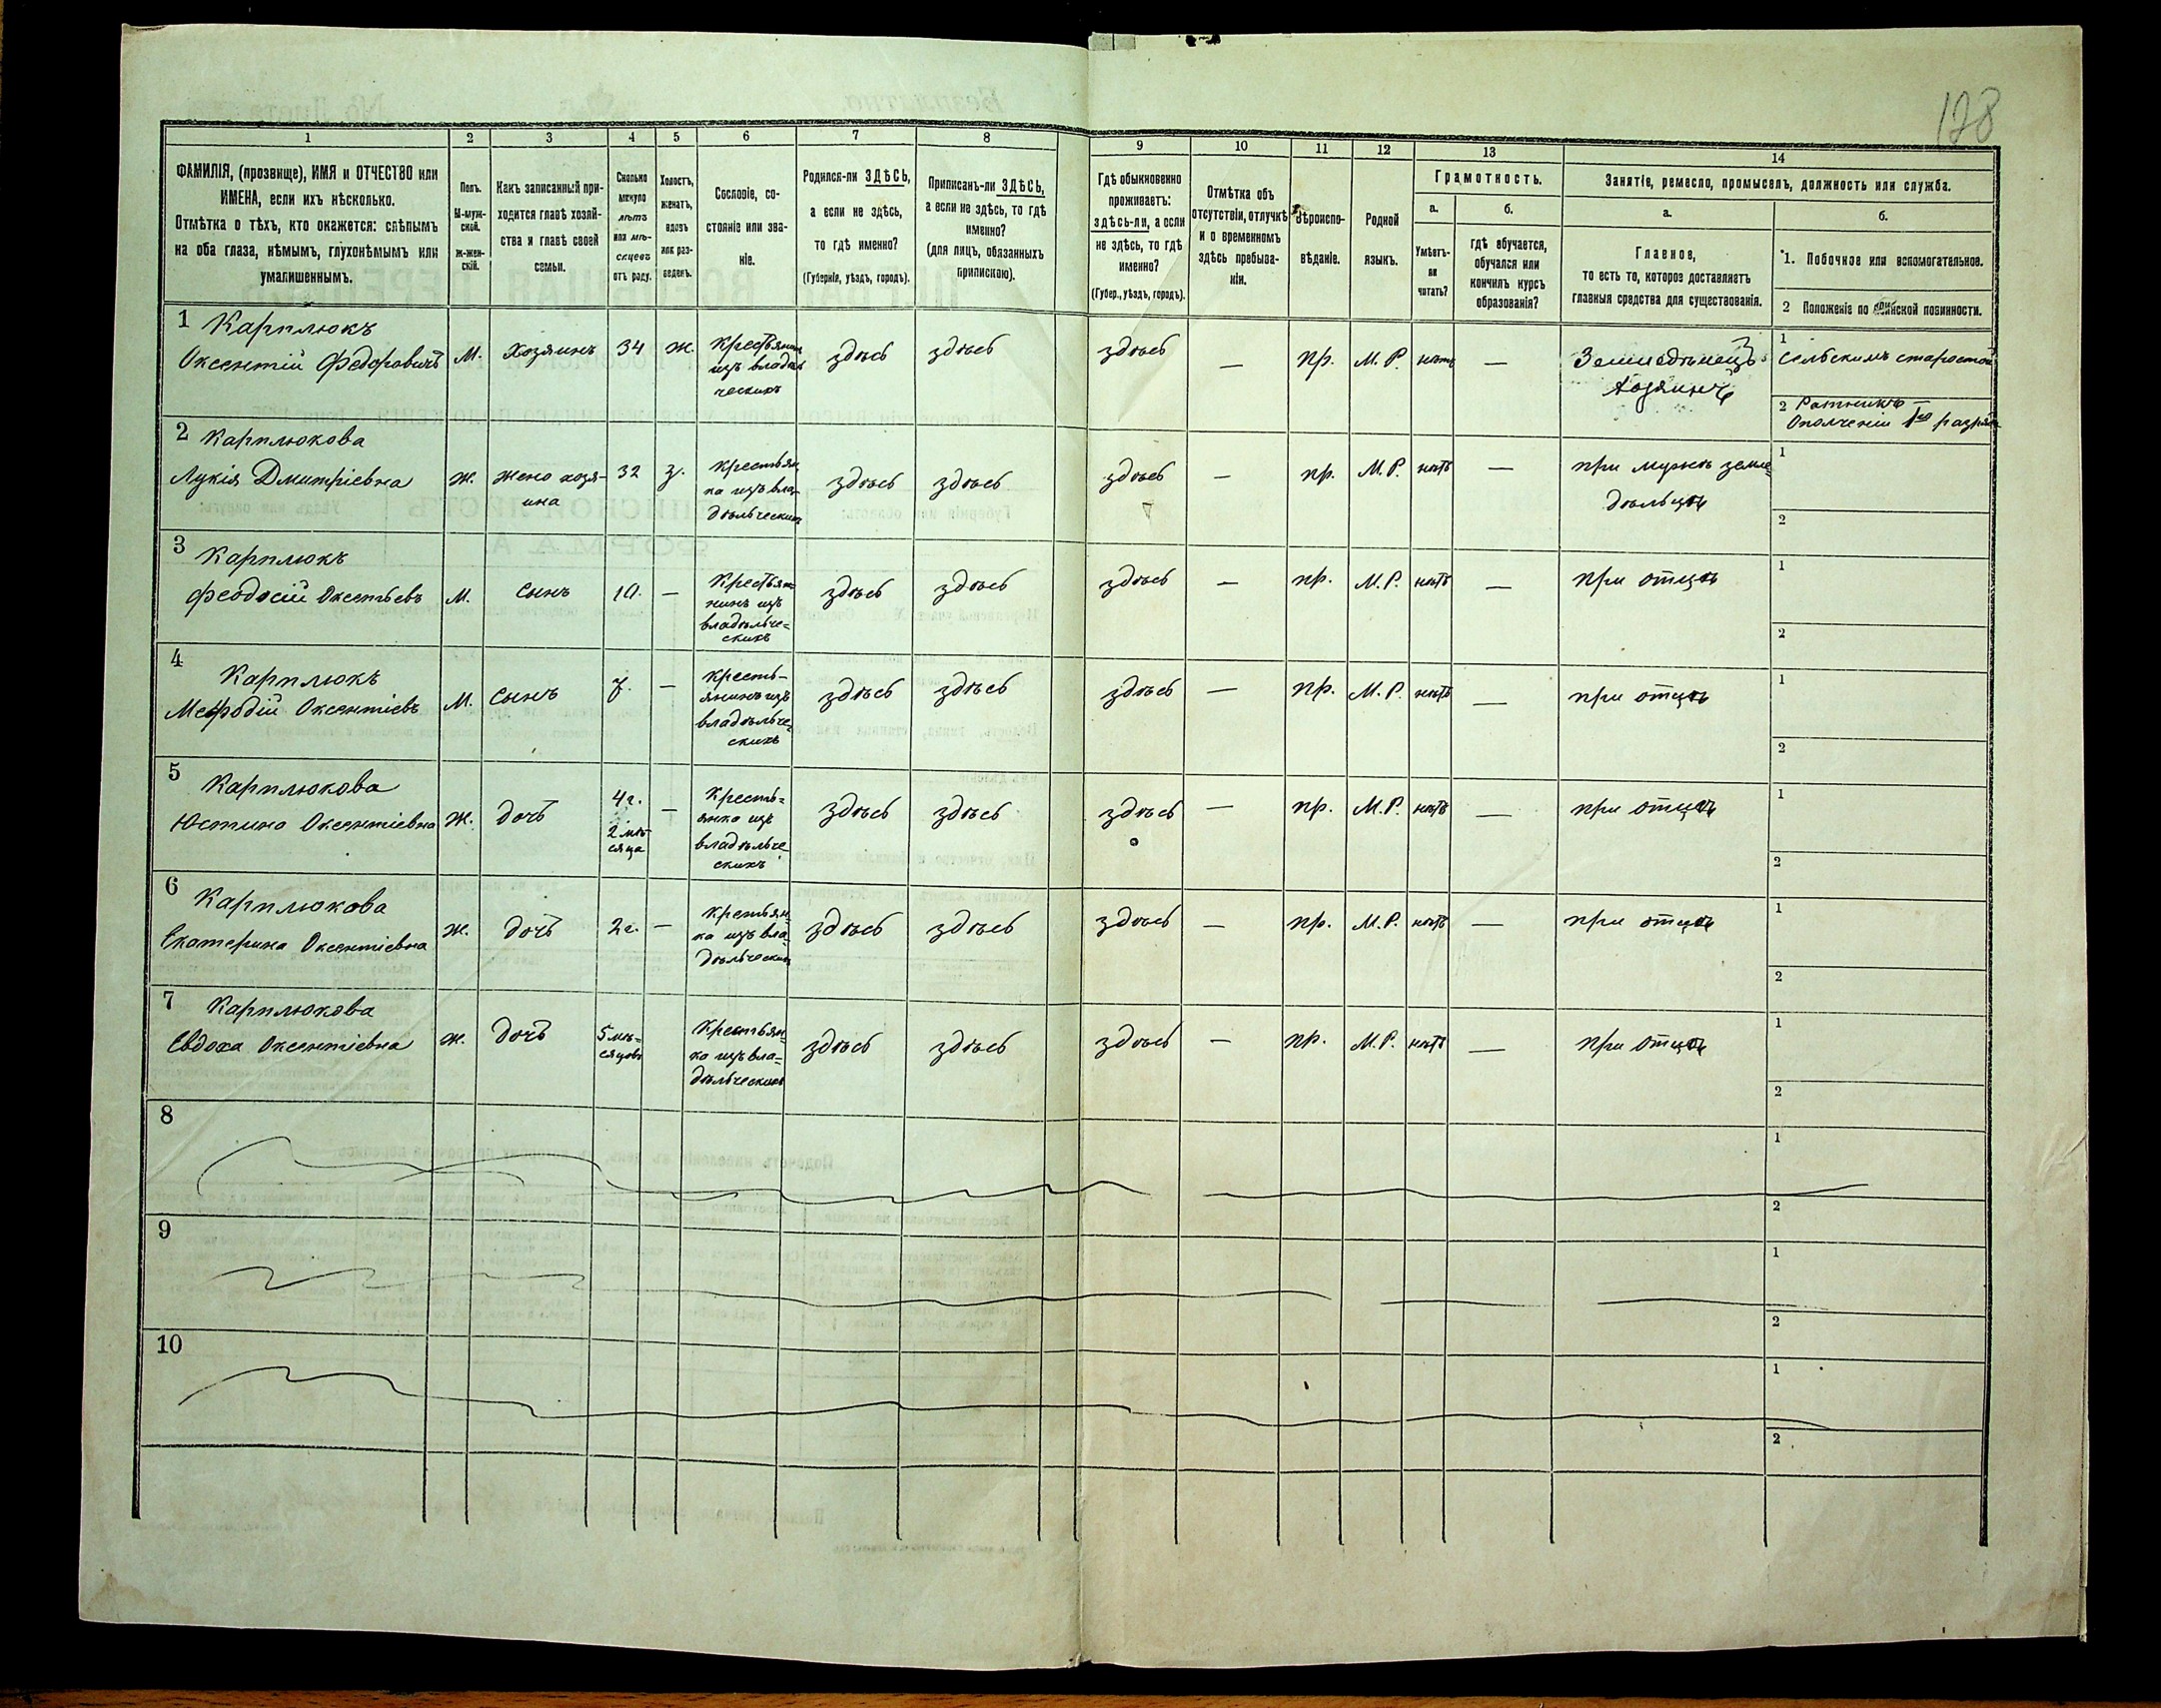 128
1
2
3
4
5
6
7
8
9
10
11
12
13
14
ФАМИЛІЯ, (прозвище), ИМЯ и ОТЧЕСТВО или
ИМЕНА, если ихъ нѣсколько.
Отмѣтка о тѣхъ, кто окажется: слѣпымъ
на оба глаза, нѣмымъ, глухонѣмымъ или
умалишеннымъ.
Полъ.
М-муж-
ской.
Ж-жен-
скій.
Какъ записанный при-
ходится главѣ хозяй-
ства и главѣ своей
семьи.
Сколько
минуло
лѣтъ
или мѣ-
сяцевъ
отъ роду.
Холостъ,
женатъ,
вдовъ
или раз-
веденъ.
Сословіе, со-
стояніе или зва-
ніе.
Родился-ли ЗДѢСЬ,
а если не здѣсь,
то гдѣ именно?
(Губернія, уѣздъ, городъ).
Приписанъ-ли ЗДѢСЬ,
а если не здѣсь, то гдѣ
именно?
(для лицъ, обязанныхъ
припискою).
Гдѣ обыкновенно
проживаетъ:
здѣсь-ли, а если
не здѣсь, то гдѣ
именно?
(Губер., уѣздъ, городъ).
Отмѣтка объ
отсутствіи, отлучкѣ
и о временномъ
здѣсь пребыва-
ніи.
Вѣроиспо-
вѣданіе.
Родной
языкъ.
Грамотность.
а.
Умѣетъ-
ли
читать?
б.
гдѣ обучается,
обучался или
кончилъ курсъ
образованія?
Занятіе, ремесло, промыселъ, должность или служба.
а.
Главное,
то есть то, которое доставляетъ
главныя средства для существованія.
б.
1. Побочное или вспомогательное.
2 Положеніе по воинской повинности.
1 Карплюкъ
Оксентій Федоровичъ
М.
Хозяинъ
34
ж.
Крестьянинъ
изъ владѣль
ческихъ
здѣсь
здѣсь
здѣсь
—
пр.
М. Р.
нѣтъ
—
Земледѣлецъ
хозяинъ
1
Сельскимъ старостой
2 Ратникъ
Ополченія 1го разряда
2 Карплюкова
Лукія Дмитріевна
Ж.
жена хозя-
ина
32
з.
крестьян
ка изъ вла-
дѣльческихъ
здѣсь
здѣсь
здѣсь
—
пр.
М. Р.
нѣтъ
—
при мужѣ земле
дѣльцѣ
1
2
3 Карплюкъ
Феодосій Оксентьевъ
М.
сынъ
10.
—
Крестья-
нинъ изъ
владѣльче=
скихъ
здѣсь
здѣсь
здѣсь
—
пр.
М. Р.
нѣтъ
—
при отцѣ
1
2
4
Карплюкъ
Мефодій Оксентіевъ
М.
сынъ
7.
—
кресть-
янинъ изъ
владѣльче=
скихъ
здѣсь
здѣсь
здѣсь
—
пр.
М. Р.
нѣтъ
—
при отцѣ
1
2
5
Карплюкова
Юстина Оксентіевна
Ж.
дочь
4 г.
2 мѣ-
сяца
—
Кресть=
янка изъ
владѣльче
скихъ
здѣсь
здѣсь
здѣсь
—
пр.
М. Р.
нѣтъ
—
при отцѣ
1
2
6
Карплюкова
Екатерина Оксентіевна
Ж.
дочь
2 г.
—
крестьян-
ка изъ вла-
дѣльческихъ
здѣсь
здѣсь
здѣсь
—
пр.
М. Р.
нѣтъ
—
при отцѣ
1
2
7 Карплюкова
Евдоха Оксентіевна
ж.
дочь
5 мѣ=
сяцовъ
Крестьян-
ка изъ вла-
дѣльческихъ
здѣсь
здѣсь
здѣсь
—
пр.
М. Р.
нѣтъ
—
при отцѣ
1
2
8
1
2
9
1
2
10
1
2